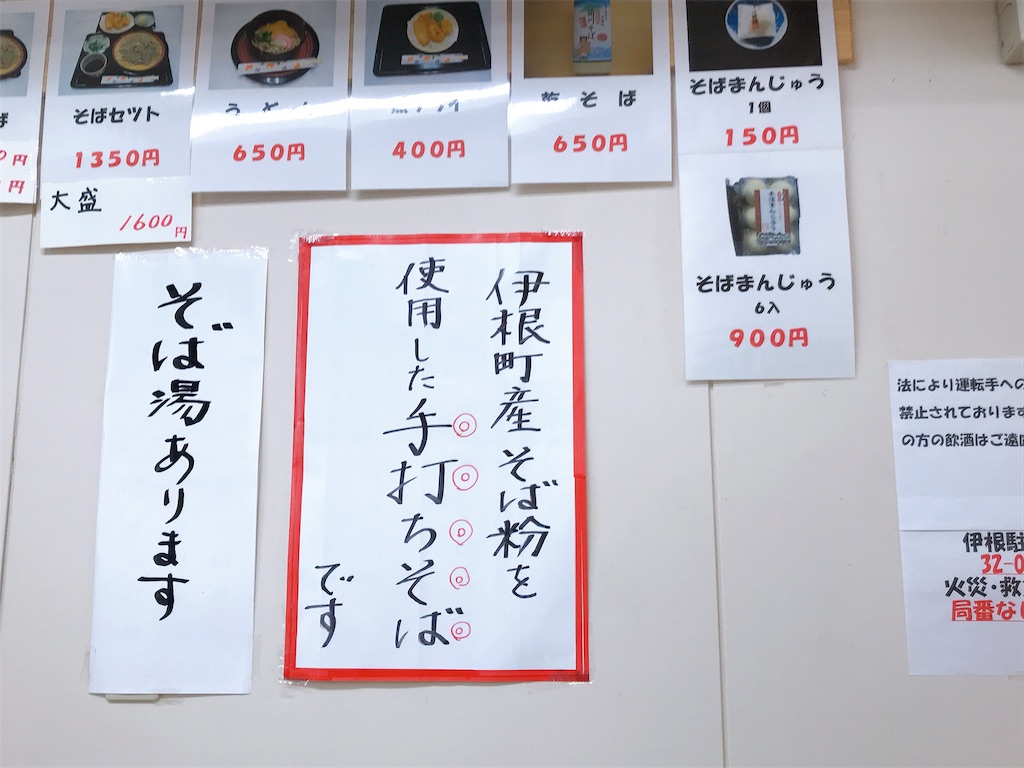 そばセット
1350円
大盛
1600円
うどん
650円
400円
乾そば
650円
そばまんじゅう
1個
150円
そばまんじゅう
6入
900円
伊根町産そば粉を
使用した手打ちそば
です
そば湯あります
法により運転手への
禁止されております
の方の飲酒はご遠
伊根駐
32-0
火災・救
局番な